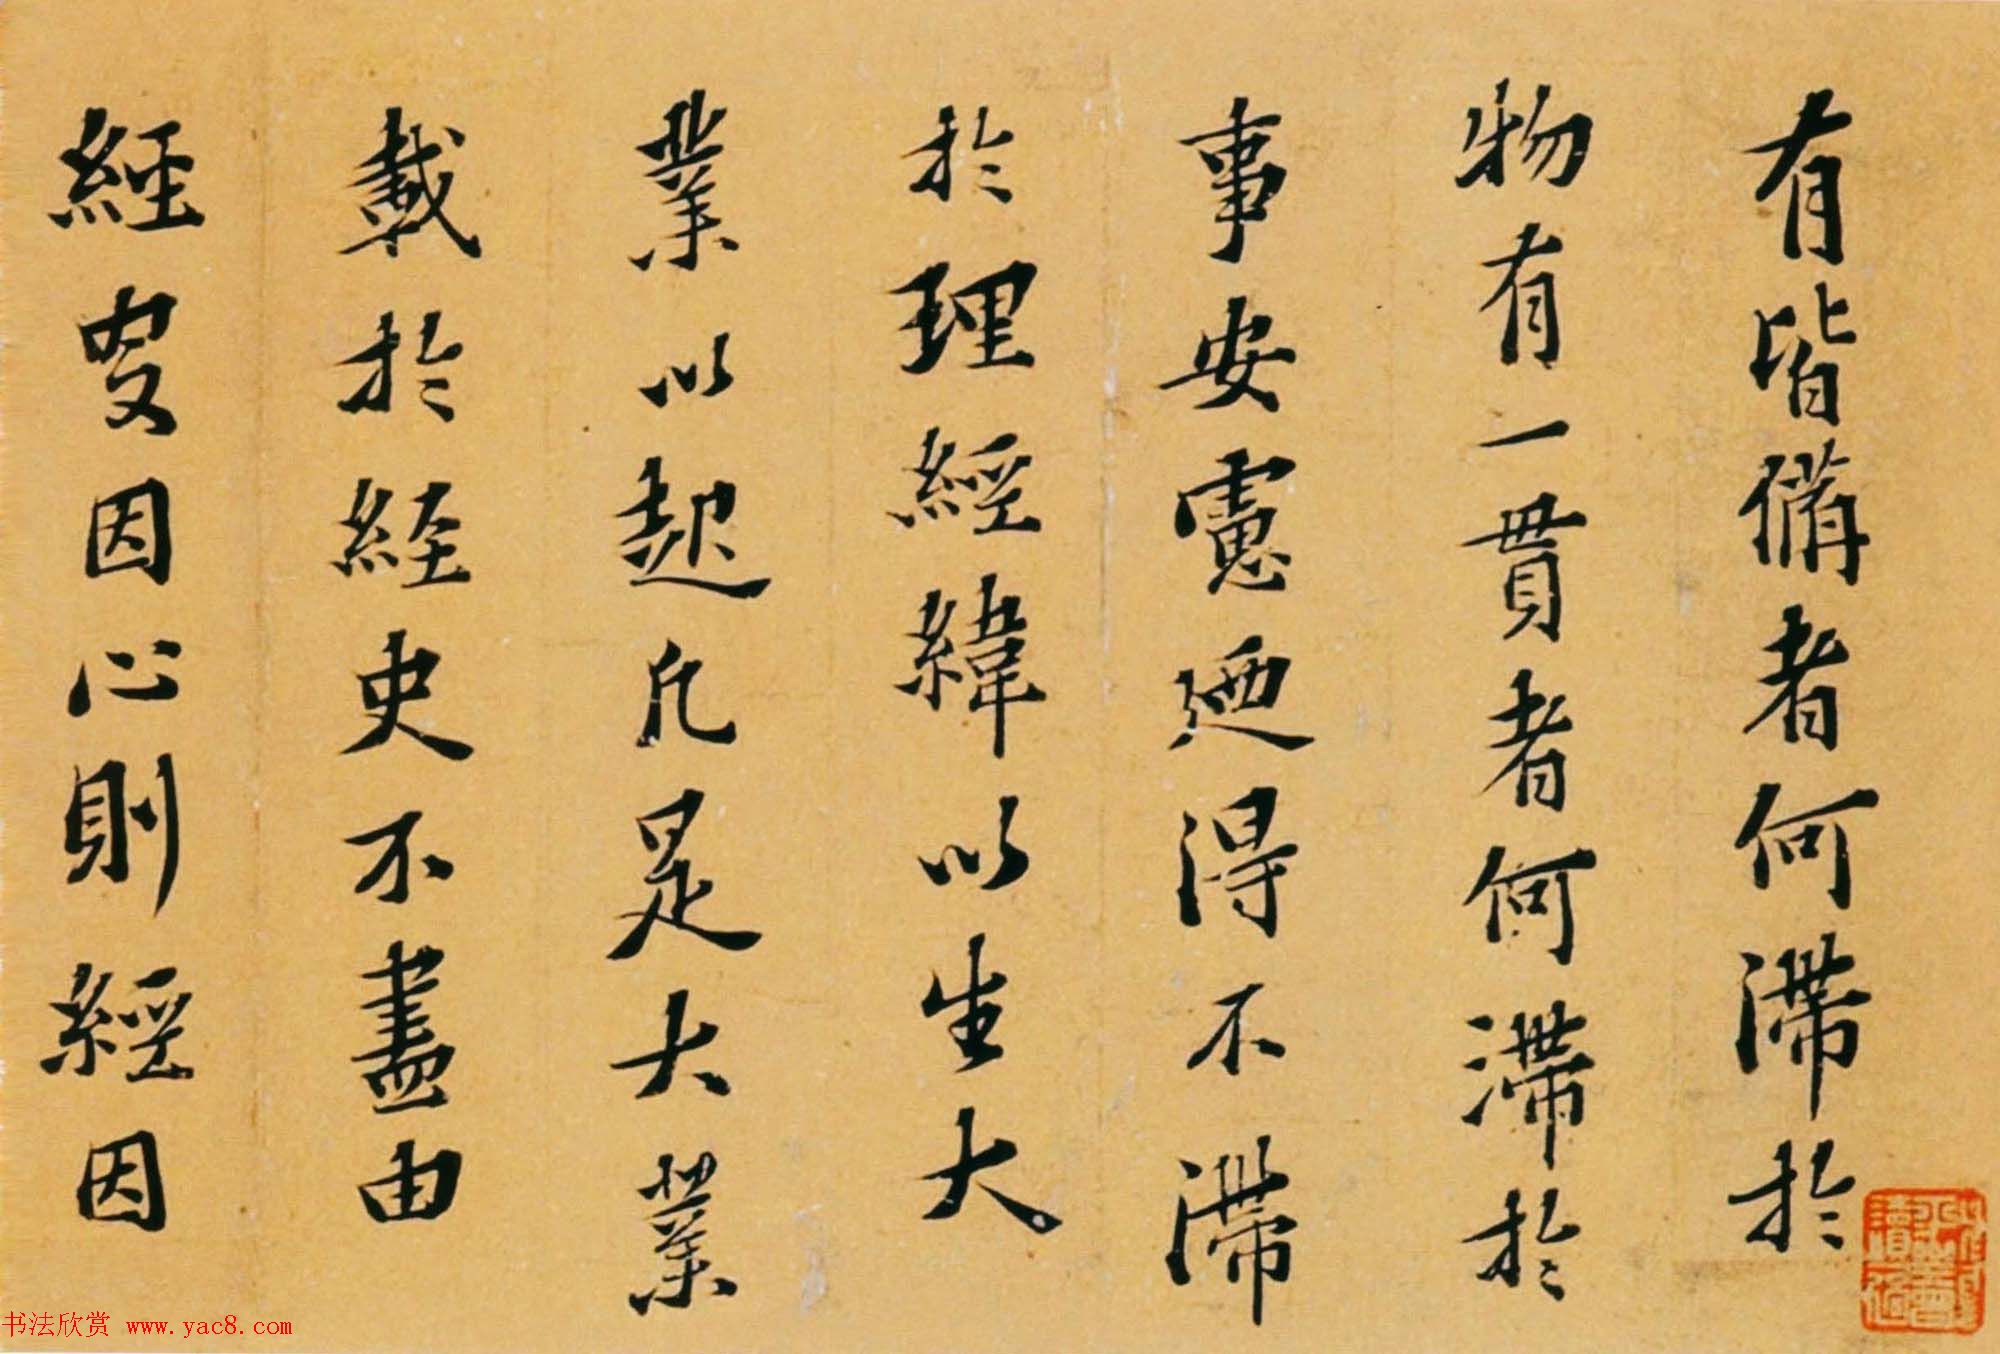 有皆備者何滯於
物有一貫者何滯於
事安慮迺得不滯
於理經緯以生大
業以起凡是大業
載於經史不盡由
經史因心則經因
书法欣赏 www.yac8.com